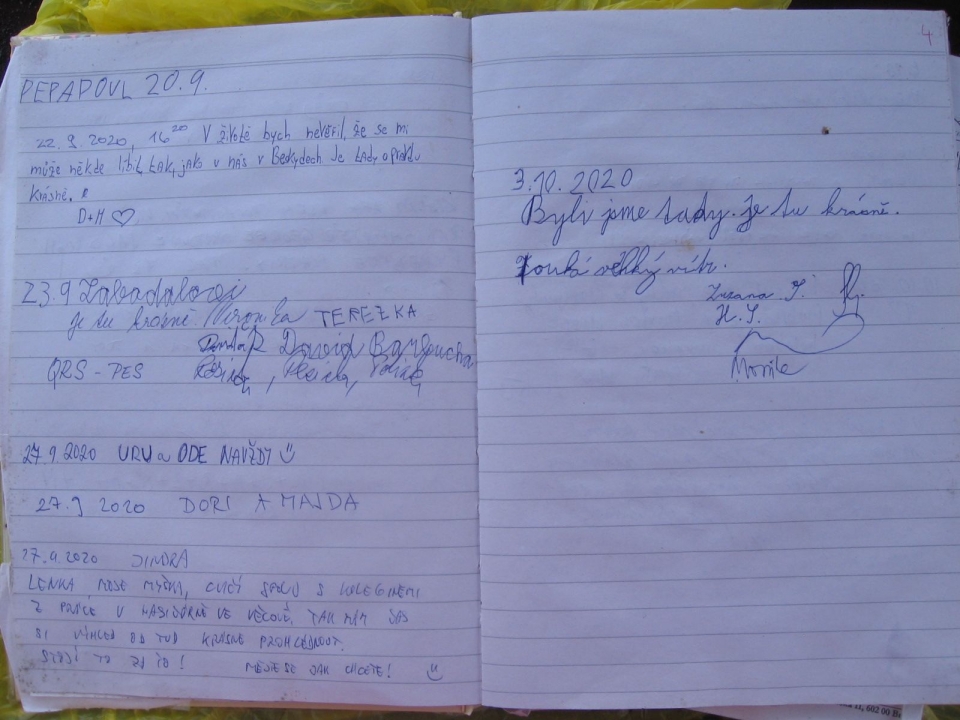 PEPAPOVL 20.9.
22.9.2020, 16²⁰ V životě bych nevěřil, že se mi
může někde líbit tak, jako u nás v Beskydech. Je tady opravdu
krásně.
D+M ♡
23.9
je tu krásně Veronika TEREZKA
David Barloucha
QRS - PES
27.9.2020 URU a ODE NAVŽDY
27.9 2020 DORI A MAJDA
27.9.2020 JINDRA
LENKA, MOJE MYŠKA, CVIČÍ SPOLU S KOLEGINĚMI
Z PRÁCE V HASIČÁRNĚ VE TAK MÁM ČAS
SI VÝHLED OD TUD KRÁSNĚ PROHLÉDNOUT.
STOJÍ TO ZA TO! MĚJTE SE JAK CHCETE!
4
3.10.2020
Byli jsme tady. je tu krásně.
Fouká velký vítr.
Zuzana J.
H.J.